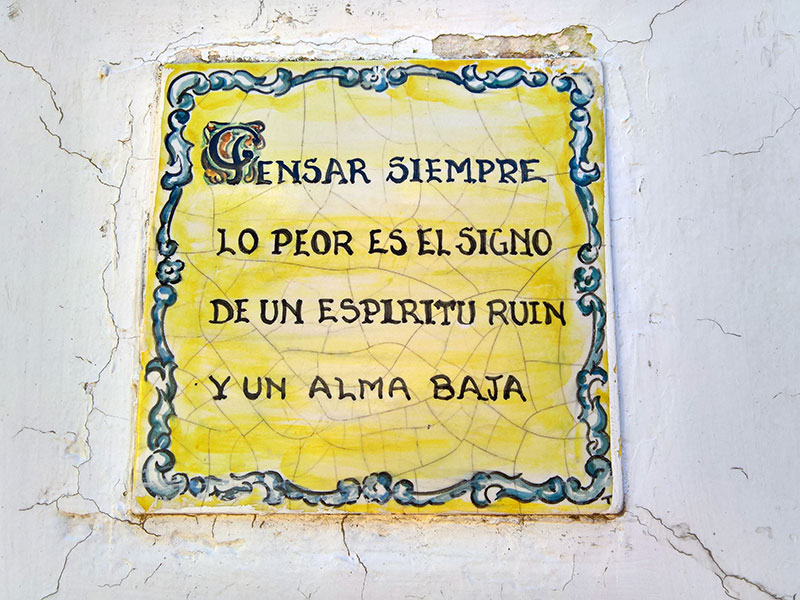 PENSAR SIEMPRE
LO PEOR ES EL SIGNO
DE UN ESPIRITU RUIN
Y UN ALMA BAJA